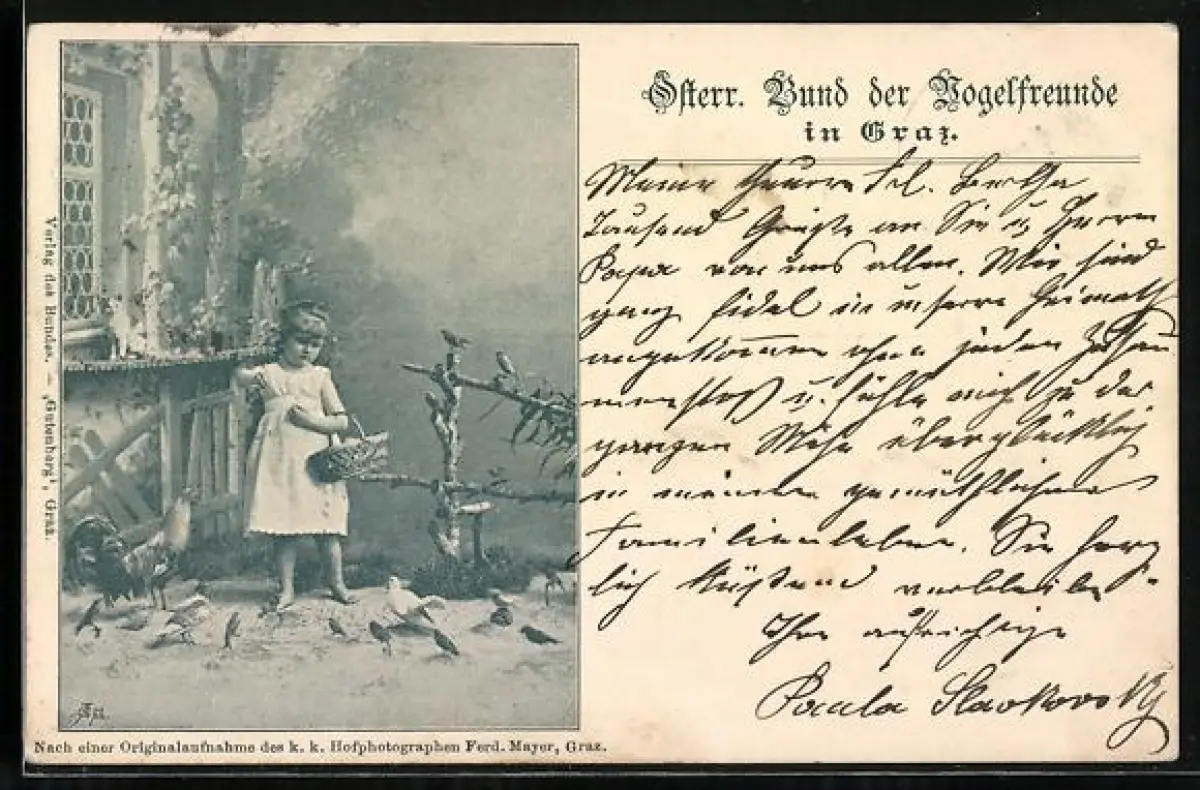 Verlag des Bundes. — „Gutenberg", Graz.
Nach einer Originalaufnahme des k. k. Hofphotographen Ferd. Mayer, Graz.
Österr. Bund der Vogelfreunde
in Graz.
Meine theure Frl. Bertha
Tausend Grüße an Sie u. Herrn
Papa von uns allen. Wir sind
ganz fidel in unsere Heimath
angekommen ohne jeden Zusam
menstoß u. fühle mich zu der
ganzen Mühe überglücklich
in meinem gemüthlichen
Familienleben. Sie herz
lich küßend verbleibe
Ihre aufrichtige
Paula Slavkovsky